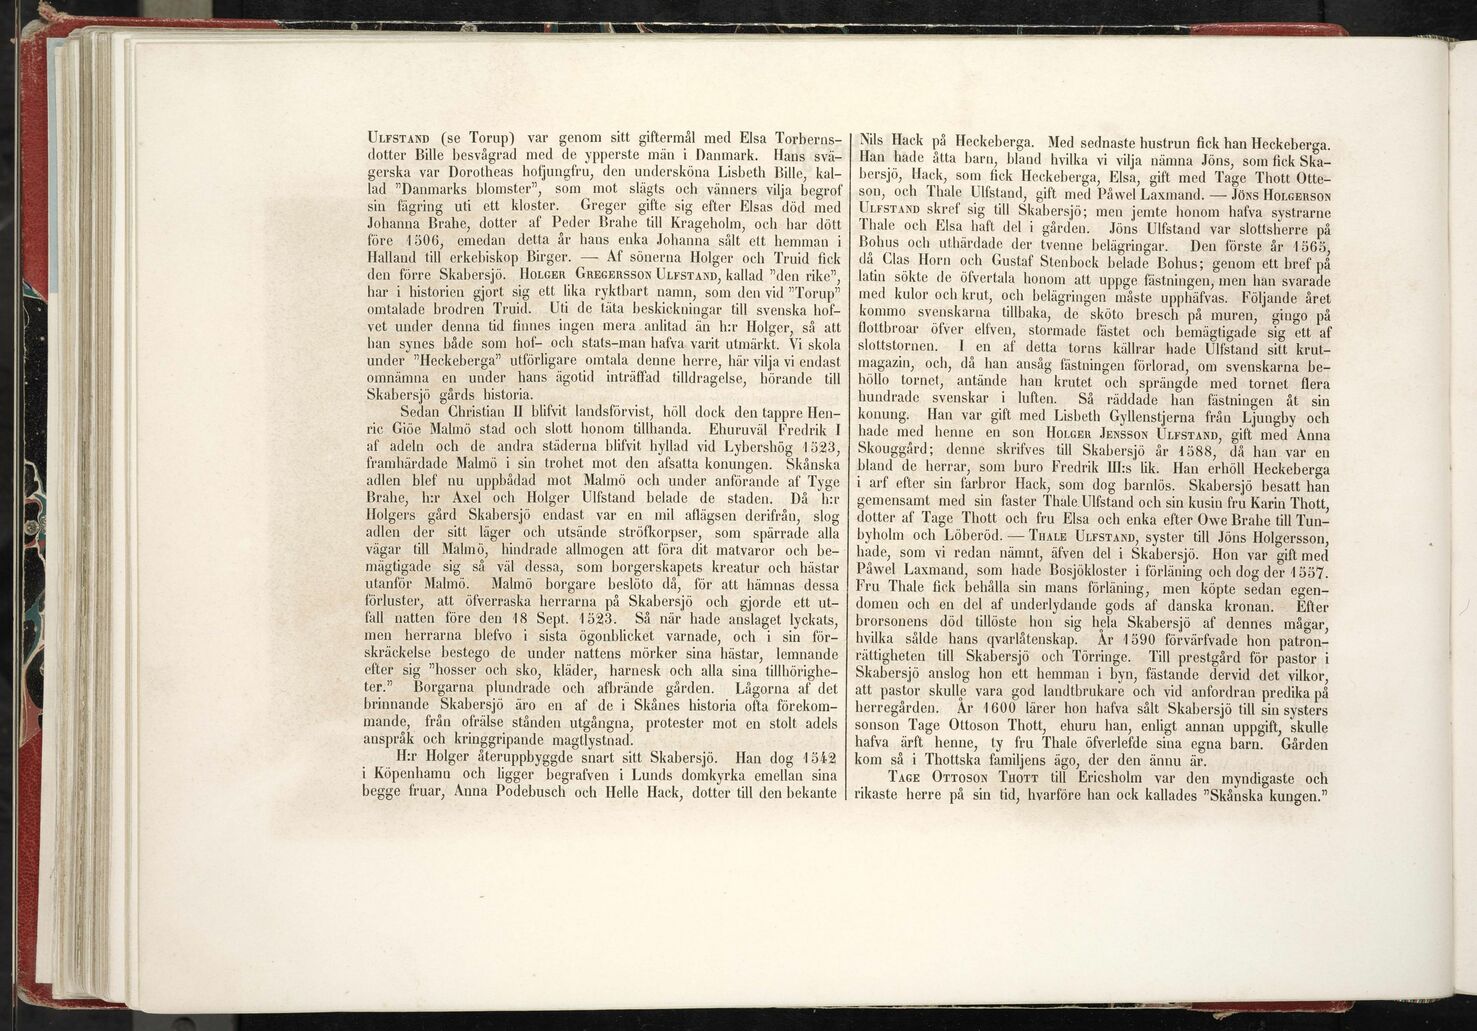 ULFSTAND (se Torup) var genom sitt giftermål med Elsa Torberns-
dotter Bille besvågrad med de ypperste män i Danmark. Hans svä-
gerska var Dorotheas hofjungfru, den undersköna Lisbeth Bille, kal-
lad ”Danmarks blomster”, som mot slägts och vänners vilja begrof
sin fägring uti ett kloster. Greger gifte sig efter Elsas död med
Johanna Brahe, dotter af Peder Brahe till Krageholm, och har dött
före 1506, emedan detta år hans enka Johanna sålt ett hemman i
Halland till erkebiskop Birger. — Af sönerna Holger och Truid fick
den förre Skabersjö. HOLGER GREGERSSON ULFSTAND, kallad ”den rike”,
har i historien gjort sig ett lika ryktbart namn, som den vid ”Torup”
omtalade brodren Truid. Uti de täta beskickningar till svenska hof-
vet under denna tid finnes ingen mera anlitad än h:r Holger, så att
han synes både som hof- och stats-man hafva varit utmärkt. Vi skola
under ”Heckeberga” utförligare omtala denne herre, här vilja vi endast
omnämna en under hans ägotid inträffad tilldragelse, hörande till
Skabersjö gårds historia.
Sedan Christian II blifvit landsförvist, höll dock den tappre Hen-
ric Giöe Malmö stad och slott honom tillhanda. Ehuruväl Fredrik I
af adeln och de andra städerna blifvit hyllad vid Lybershög 1523,
framhärdade Malmö i sin trohet mot den afsatta konungen. Skånska
adlen blef nu uppbådad mot Malmö och under anförande af Tyge
Brahe, h:r Axel och Holger Ulfstand belade de staden. Då h:r
Holgers gård Skabersjö endast var en mil aflägsen derifrån, slog
adlen der sitt läger och utsände ströfkorpser, som spärrade alla
vägar till Malmö, hindrade allmogen att föra dit matvaror och be-
mägtigade sig så väl dessa, som borgerskapets kreatur och hästar
utanför Malmö. Malmö borgare beslöto då, för att hämnas dessa
förluster, att öfverraska herrarna på Skabersjö och gjorde ett ut-
fall natten före den 18 Sept. 1523. Så när hade anslaget lyckats,
men herrarna blefvo i sista ögonblicket varnade, och i sin för-
skräckelse bestego de under nattens mörker sina hästar, lemnande
efter sig ”hosser och sko, kläder, harnesk och alla sina tillhörighe-
ter.” Borgarna plundrade och afbrände gården. Lågorna af det
brinnande Skabersjö äro en af de i Skånes historia ofta förekom-
mande, från ofrälse stånden utgångna, protester mot en stolt adels
anspråk och kringgripande magtlystnad.
H:r Holger återuppbyggde snart sitt Skabersjö. Han dog 1542
i Köpenhamn och ligger begrafven i Lunds domkyrka emellan sina
begge fruar, Anna Podebusch och Helle Hack, dotter till den bekante
Nils Hack på Heckeberga. Med sednaste hustrun fick han Heckeberga.
Han hade åtta barn, bland hvilka vi vilja nämna Jöns, som fick Ska-
bersjö, Hack, som fick Heckeberga, Elsa, gift med Tage Thott Otte-
son, och Thale Ulfstand, gift med Påwel Laxmand. — JÖNS HOLGERSON
ULFSTAND skref sig till Skabersjö; men jemte honom hafva systrarne
Thale och Elsa haft del i gården. Jöns Ulfstand var slottsherre på
Bohus och uthärdade der tvenne belägringar. Den förste år 1565,
då Clas Horn och Gustaf Stenbock belade Bohus; genom ett bref på
latin sökte de öfvertala honom att uppge fästningen, men han svarade
med kulor och krut, och belägringen måste upphäfvas. Följande året
kommo svenskarna tillbaka, de sköto bresch på muren, gingo på
flottbroar öfver elfven, stormade fästet och bemägtigade sig ett af
slottstornen. I en af detta torns källrar hade Ulfstand sitt krut-
magazin, och, då han ansåg fästningen förlorad, om svenskarna be-
höllo tornet, antände han krutet och sprängde med tornet flera
hundrade svenskar i luften. Så räddade han fästningen åt sin
konung. Han var gift med Lisbeth Gyllenstjerna från Ljungby och
hade med henne en son HOLGER JENSSON ULFSTAND, gift med Anna
Skouggård; denne skrifves till Skabersjö år 1588, då han var en
bland de herrar, som buro Fredrik III:s lik. Han erhöll Heckeberga
i arf efter sin farbror Hack, som dog barnlös. Skabersjö besatt han
gemensamt med sin faster Thale Ulfstand och sin kusin fru Karin Thott,
dotter af Tage Thott och fru Elsa och enka efter Owe Brahe till Tun-
byholm och Löberöd. — THALE ULFSTAND, syster till Jöns Holgersson,
hade, som vi redan nämnt, äfven del i Skabersjö. Hon var gift med
Påwel Laxmand, som hade Bosjökloster i förläning och dog der 1557.
Fru Thale fick behålla sin mans förläning, men köpte sedan egen-
domen och en del af underlydande gods af danska kronan. Efter
brorsonens död tillöste hon sig hela Skabersjö af dennes mågar,
hvilka sålde hans qvarlåtenskap. År 1590 förvärfvade hon patron-
rättigheten till Skabersjö och Törringe. Till prestgård för pastor i
Skabersjö anslog hon ett hemman i byn, fästande dervid det vilkor,
att pastor skulle vara god landtbrukare och vid anfordran predika på
herregården. År 1600 lärer hon hafva sålt Skabersjö till sin systers
sonson Tage Ottoson Thott, ehuru han, enligt annan uppgift, skulle
hafva ärft henne, ty fru Thale öfverlefde sina egna barn. Gården
kom så i Thottska familjens ägo, der den ännu är.
TAGE OTTOSON THOTT till Ericsholm var den myndigaste och
rikaste herre på sin tid, hvarföre han ock kallades ”Skånska kungen.”